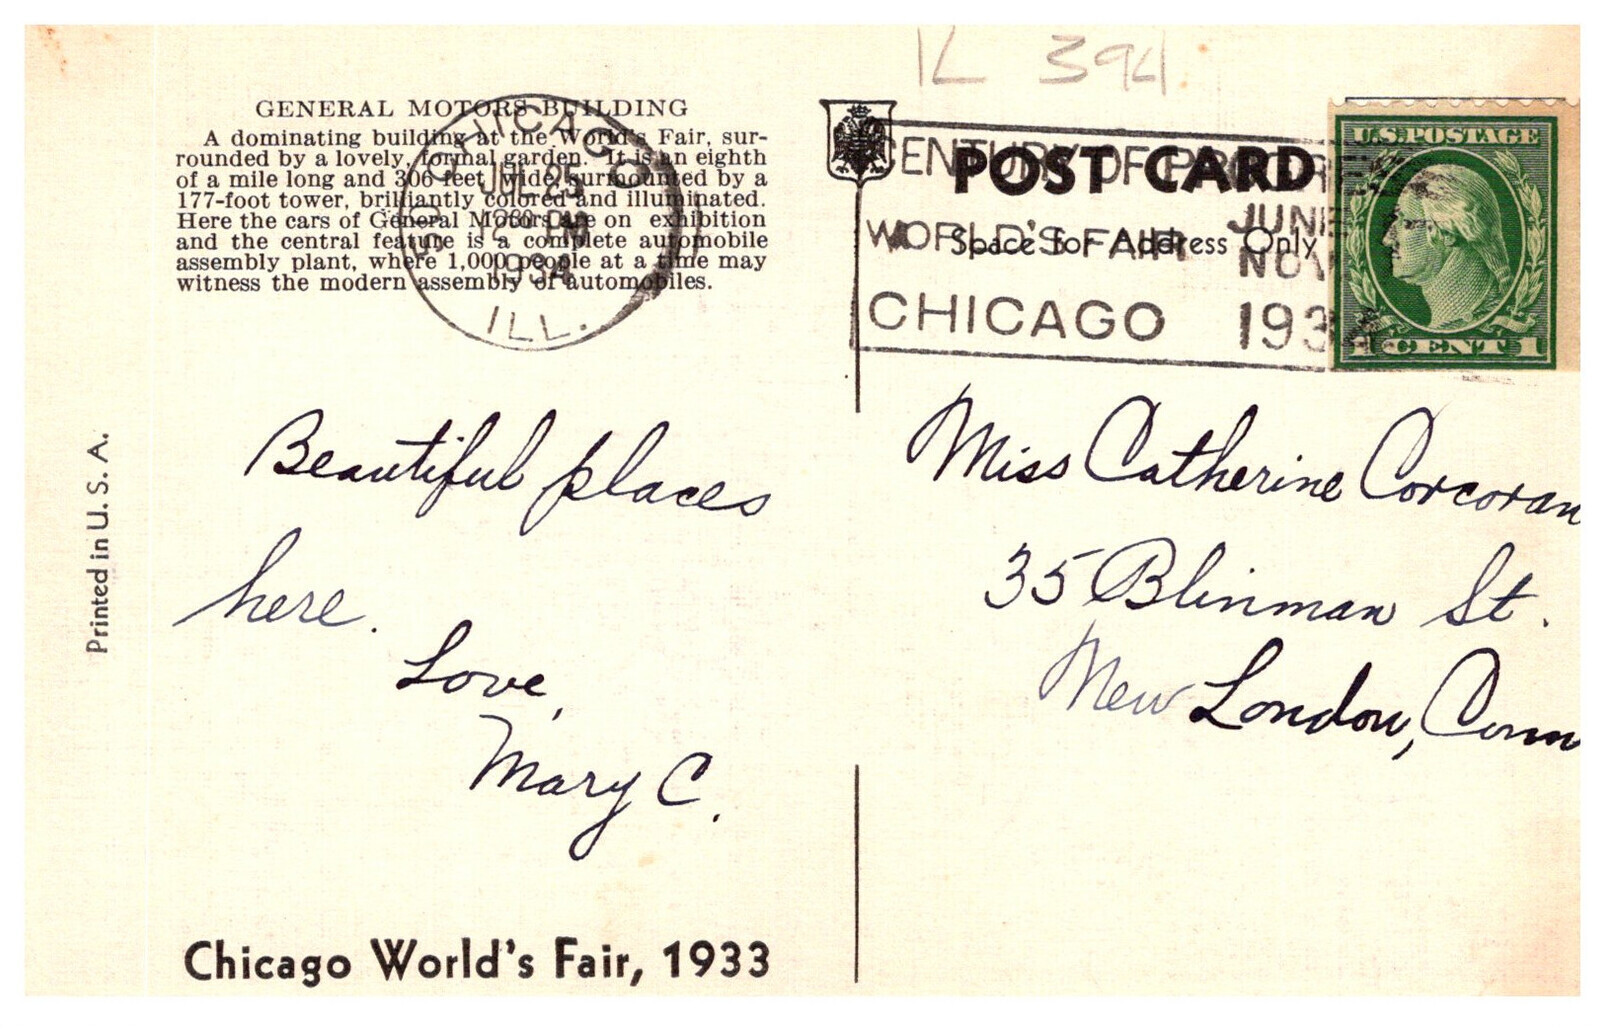 IL 394
GENERAL MOTORS BUILDING
A dominating building at the World's Fair, sur-
rounded by a lovely, formal garden. It is an eighth
of a mile long and 306 feet wide, surmounted by a
177-foot tower, brilliantly colored and illuminated.
Here the cars of General Motors are on exhibition
and the central feature is a complete automobile
assembly plant, where 1,000 people at a time may
witness the modern assembly of automobiles.
CHICAGO
JUL 25
1230 PM
1934
ILL.
POST CARD
Space for Address Only
CENTURY OF PROGRESS
WORLD'S FAIR JUNE
NOV
CHICAGO 1934
U.S. POSTAGE
1 CENT 1
Beautiful places
here.
Love,
Mary C.
Miss Catherine Corcoran
35 Blinman St.
New London, Conn
Printed in U. S. A.
Chicago World's Fair, 1933